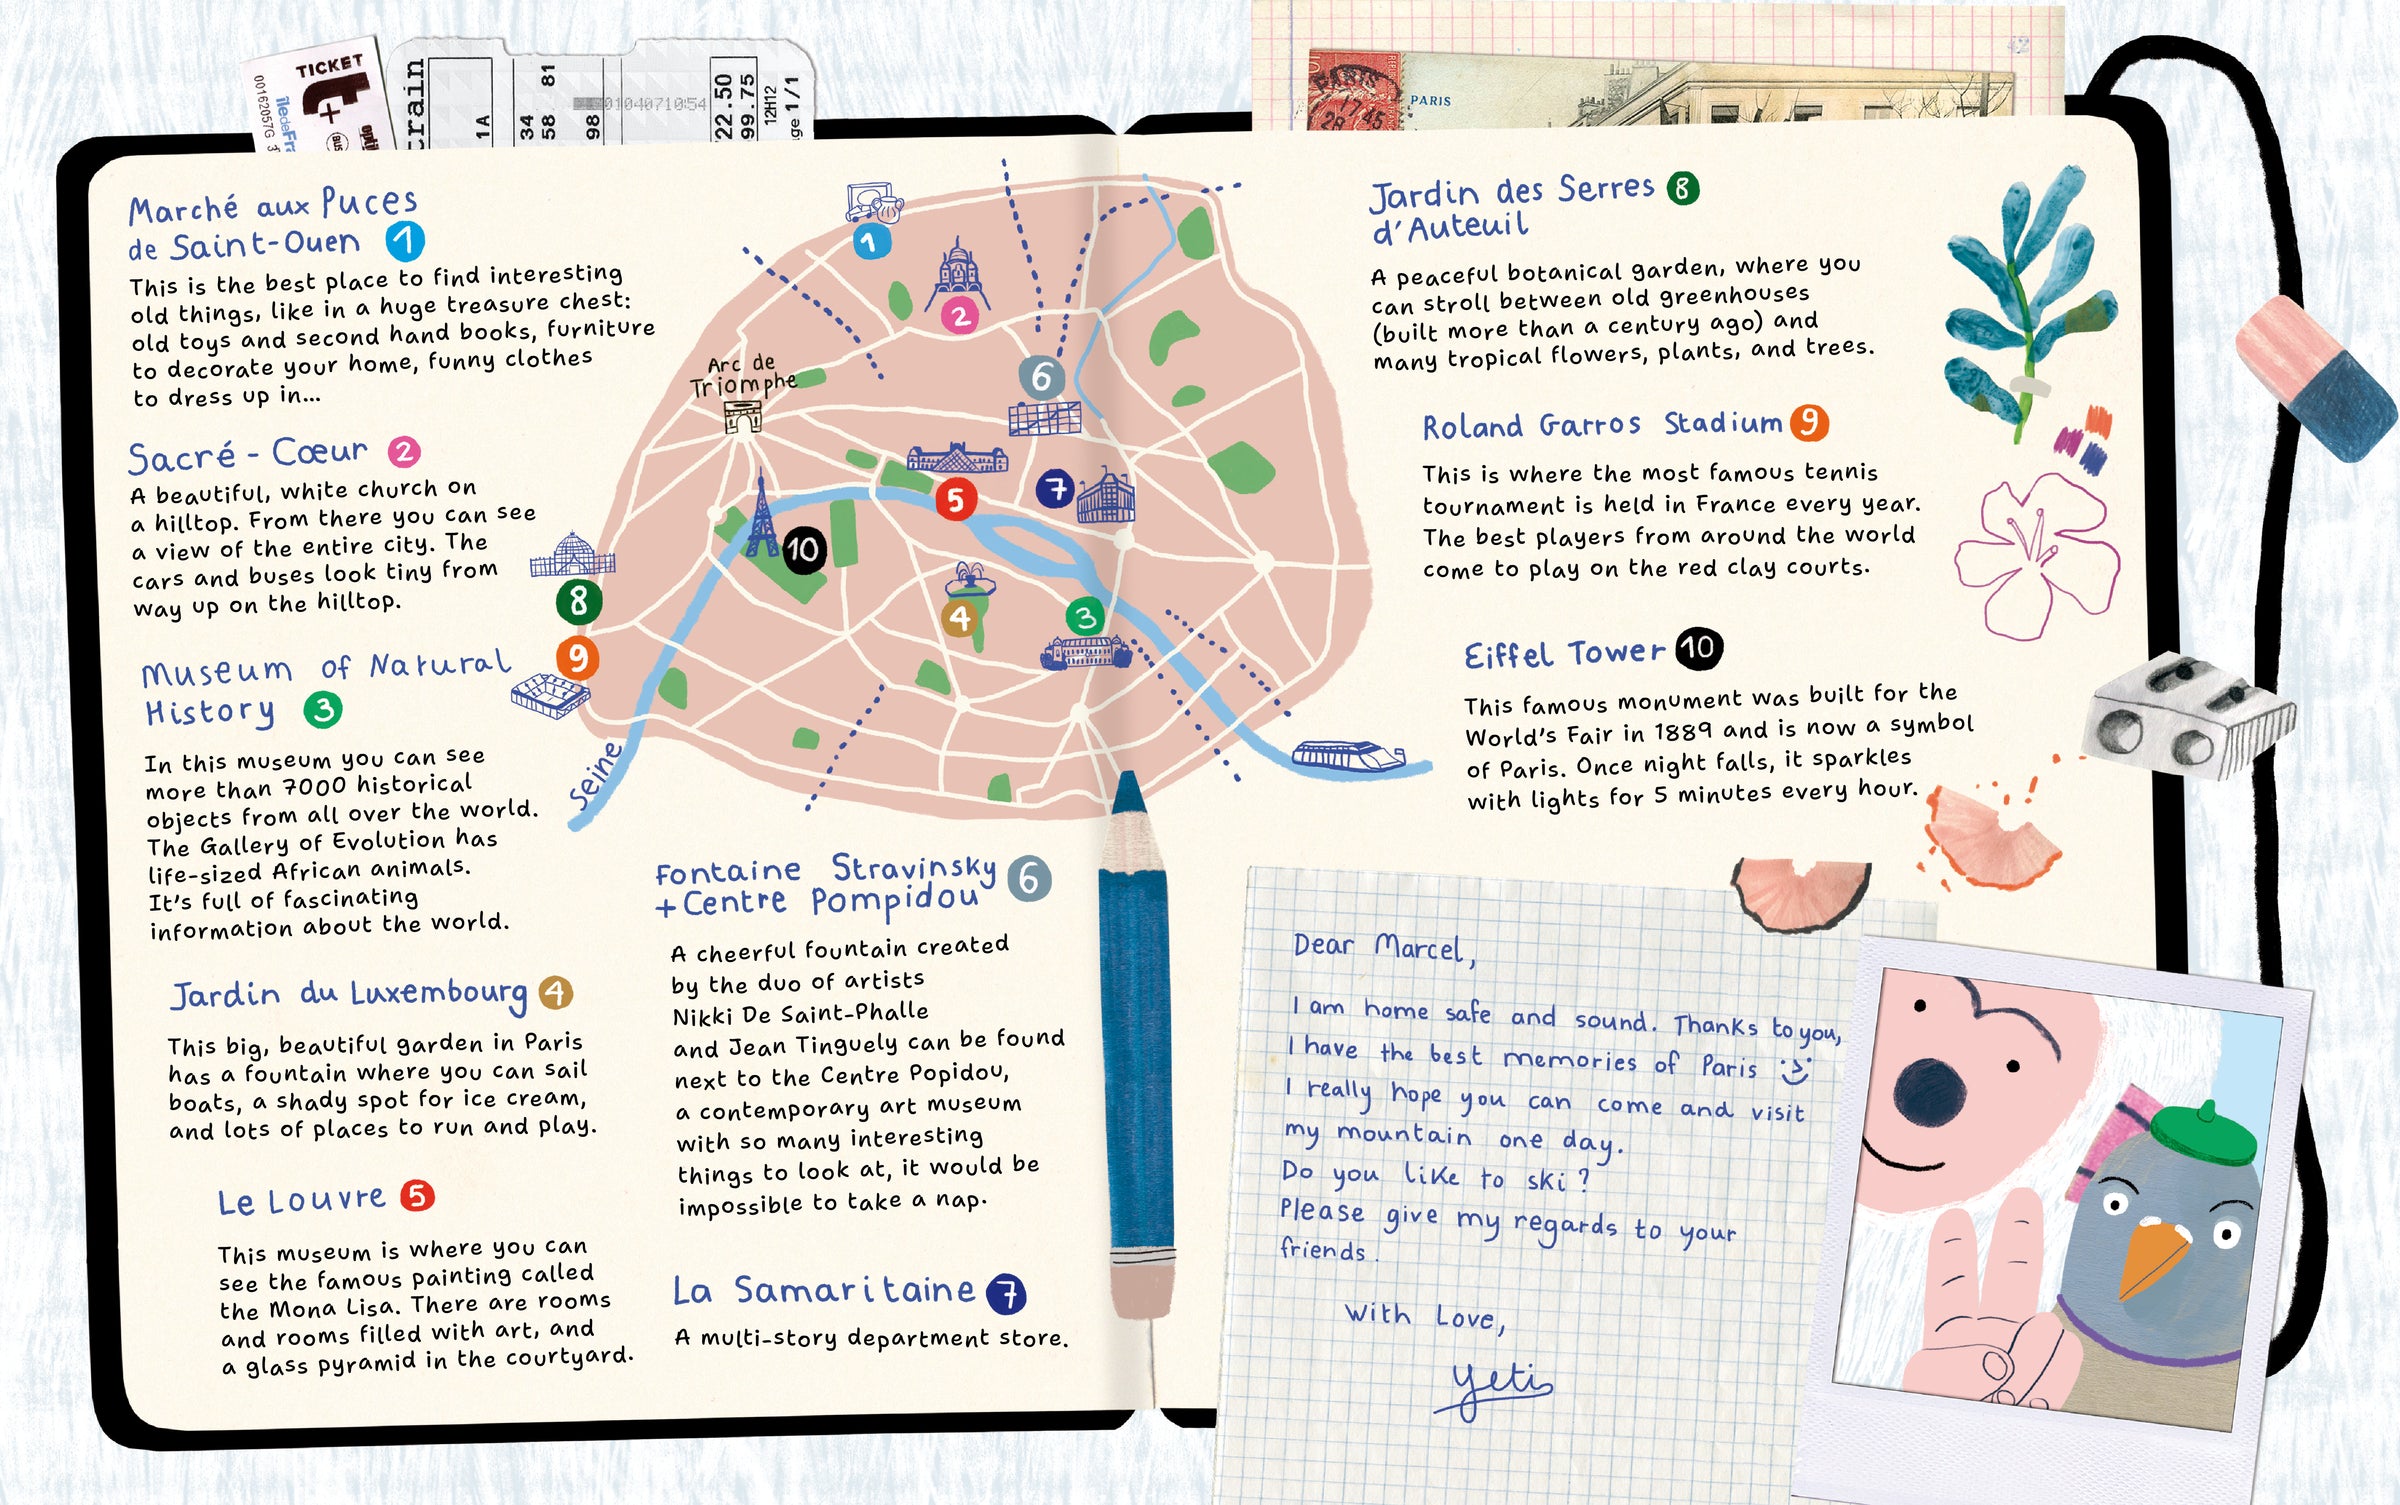 TICKET
t+
00162057G
île de Fra
BUS
crain
1A
34
58 . 81
98
0104071054
22.50
99.75
12H12
ge 1/1
42
PARIS
17 45
28
PARIS
Marché aux Puces
de Saint-Ouen 1
This is the best place to find interesting
old things, like in a huge treasure chest:
old toys and second hand books, furniture
to decorate your home, funny clothes
to dress up in...
Sacré-Cœur 2
A beautiful, white church on
a hilltop. From there you can see
a view of the entire city. The
cars and buses look tiny from
way up on the hilltop.
Museum of Natural
History 3
In this museum you can see
more than 7000 historical
objects from all over the world.
The Gallery of Evolution has
life-sized African animals.
It's full of fascinating
information about the world.
Jardin du Luxembourg 4
This big, beautiful garden in Paris
has a fountain where you can sail
boats, a shady spot for ice cream,
and lots of places to run and play.
Le Louvre 5
This museum is where you can
see the famous painting called
the Mona Lisa. There are rooms
and rooms filled with art, and
a glass pyramid in the courtyard.
1
2
Arc de
Triomphe
6
5
7
10
8
4
3
9
Seine
Fontaine Stravinsky 6
+Centre Pompidou
A cheerful fountain created
by the duo of artists
Nikki De Saint-Phalle
and Jean Tinguely can be found
next to the Centre Popidou,
a contemporary art museum
with so many interesting
things to look at, it would be
impossible to take a nap.
La Samaritaine 7
A multi-story department store.
Jardin des Serres 8
d'Auteuil
A peaceful botanical garden, where you
can stroll between old greenhouses
(built more than a century ago) and
many tropical flowers, plants, and trees.
Roland Garros Stadium 9
This is where the most famous tennis
tournament is held in France every year.
The best players from around the world
come to play on the red clay courts.
Eiffel Tower 10
This famous monument was built for the
World's Fair in 1889 and is now a symbol
of Paris. Once night falls, it sparkles
with lights for 5 minutes every hour.
Dear Marcel,
I am home safe and sound. Thanks to you,
I have the best memories of Paris
I really hope you can come and visit
my mountain one day.
Do you like to ski?
Please give my regards to your
friends.
With Love,
Yeti